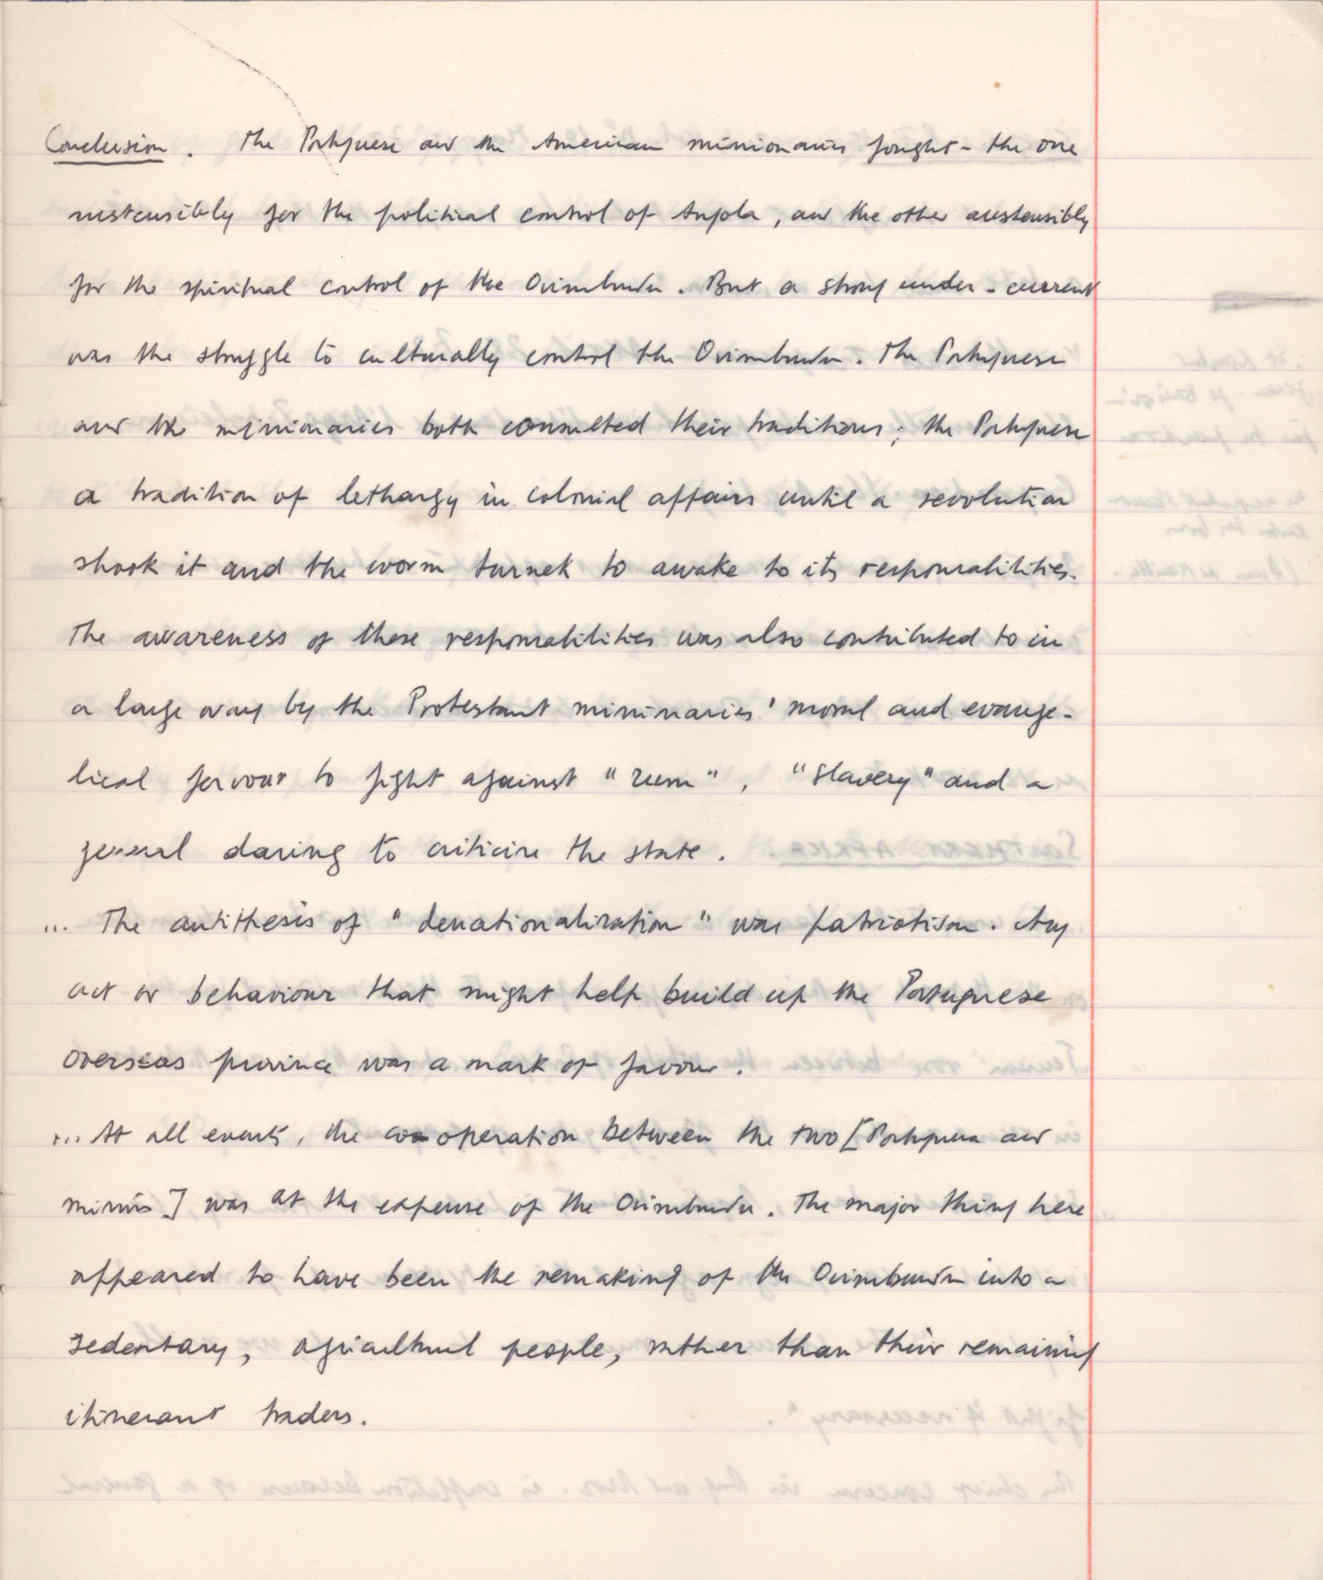 Conclusion. The Portuguese and the American missionaries fought - the one
ostensibly for the political control of Angola, and the other austensibly
for the spiritual control of the Ovimbundu. But a strong under-current
was the struggle to culturally control the Ovimbundu. The Portuguese
and the missionaries both consulted their traditions; the Portuguese
a tradition of lethargy in colonial affairs until a revolution
shook it and the worm turned to awake to its responsabilities.
The awareness of these responsabilities was also contributed to in
a large way by the Protestant missionaries' moral and evange-
lical fervour to fight against "rum", "slavery" and a
general daring to criticise the state.
... The antithesis of "denationalization" was patriotism. Any
act or behaviour that might help build up the Portuguese
overseas province was a mark of favour.
... At all events, the cooperation between the two [Portuguese and
missions] was at the expense of the Ovimbundu. The major thing here
appeared to have been the remaking of the Ovimbundu into a
sedentary, agricultural people, rather than their remaining
itinerant traders.